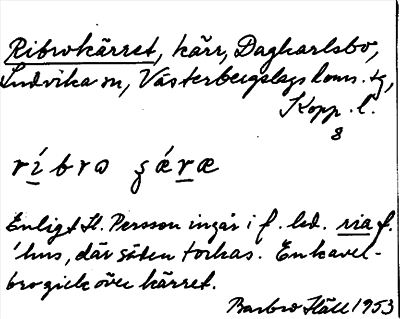 Ribrokärret, kärr, Dagkarlsbo,
Ludvika sn, Västerbergslags doms. tg,
Kopp. l.
8
ríbro gǽræ
Enligt H. Persson ingår i f. led. ria f.
'hus, där säden torkas. En kavel-
bro gick över kärret.
Barbro Häll 1953